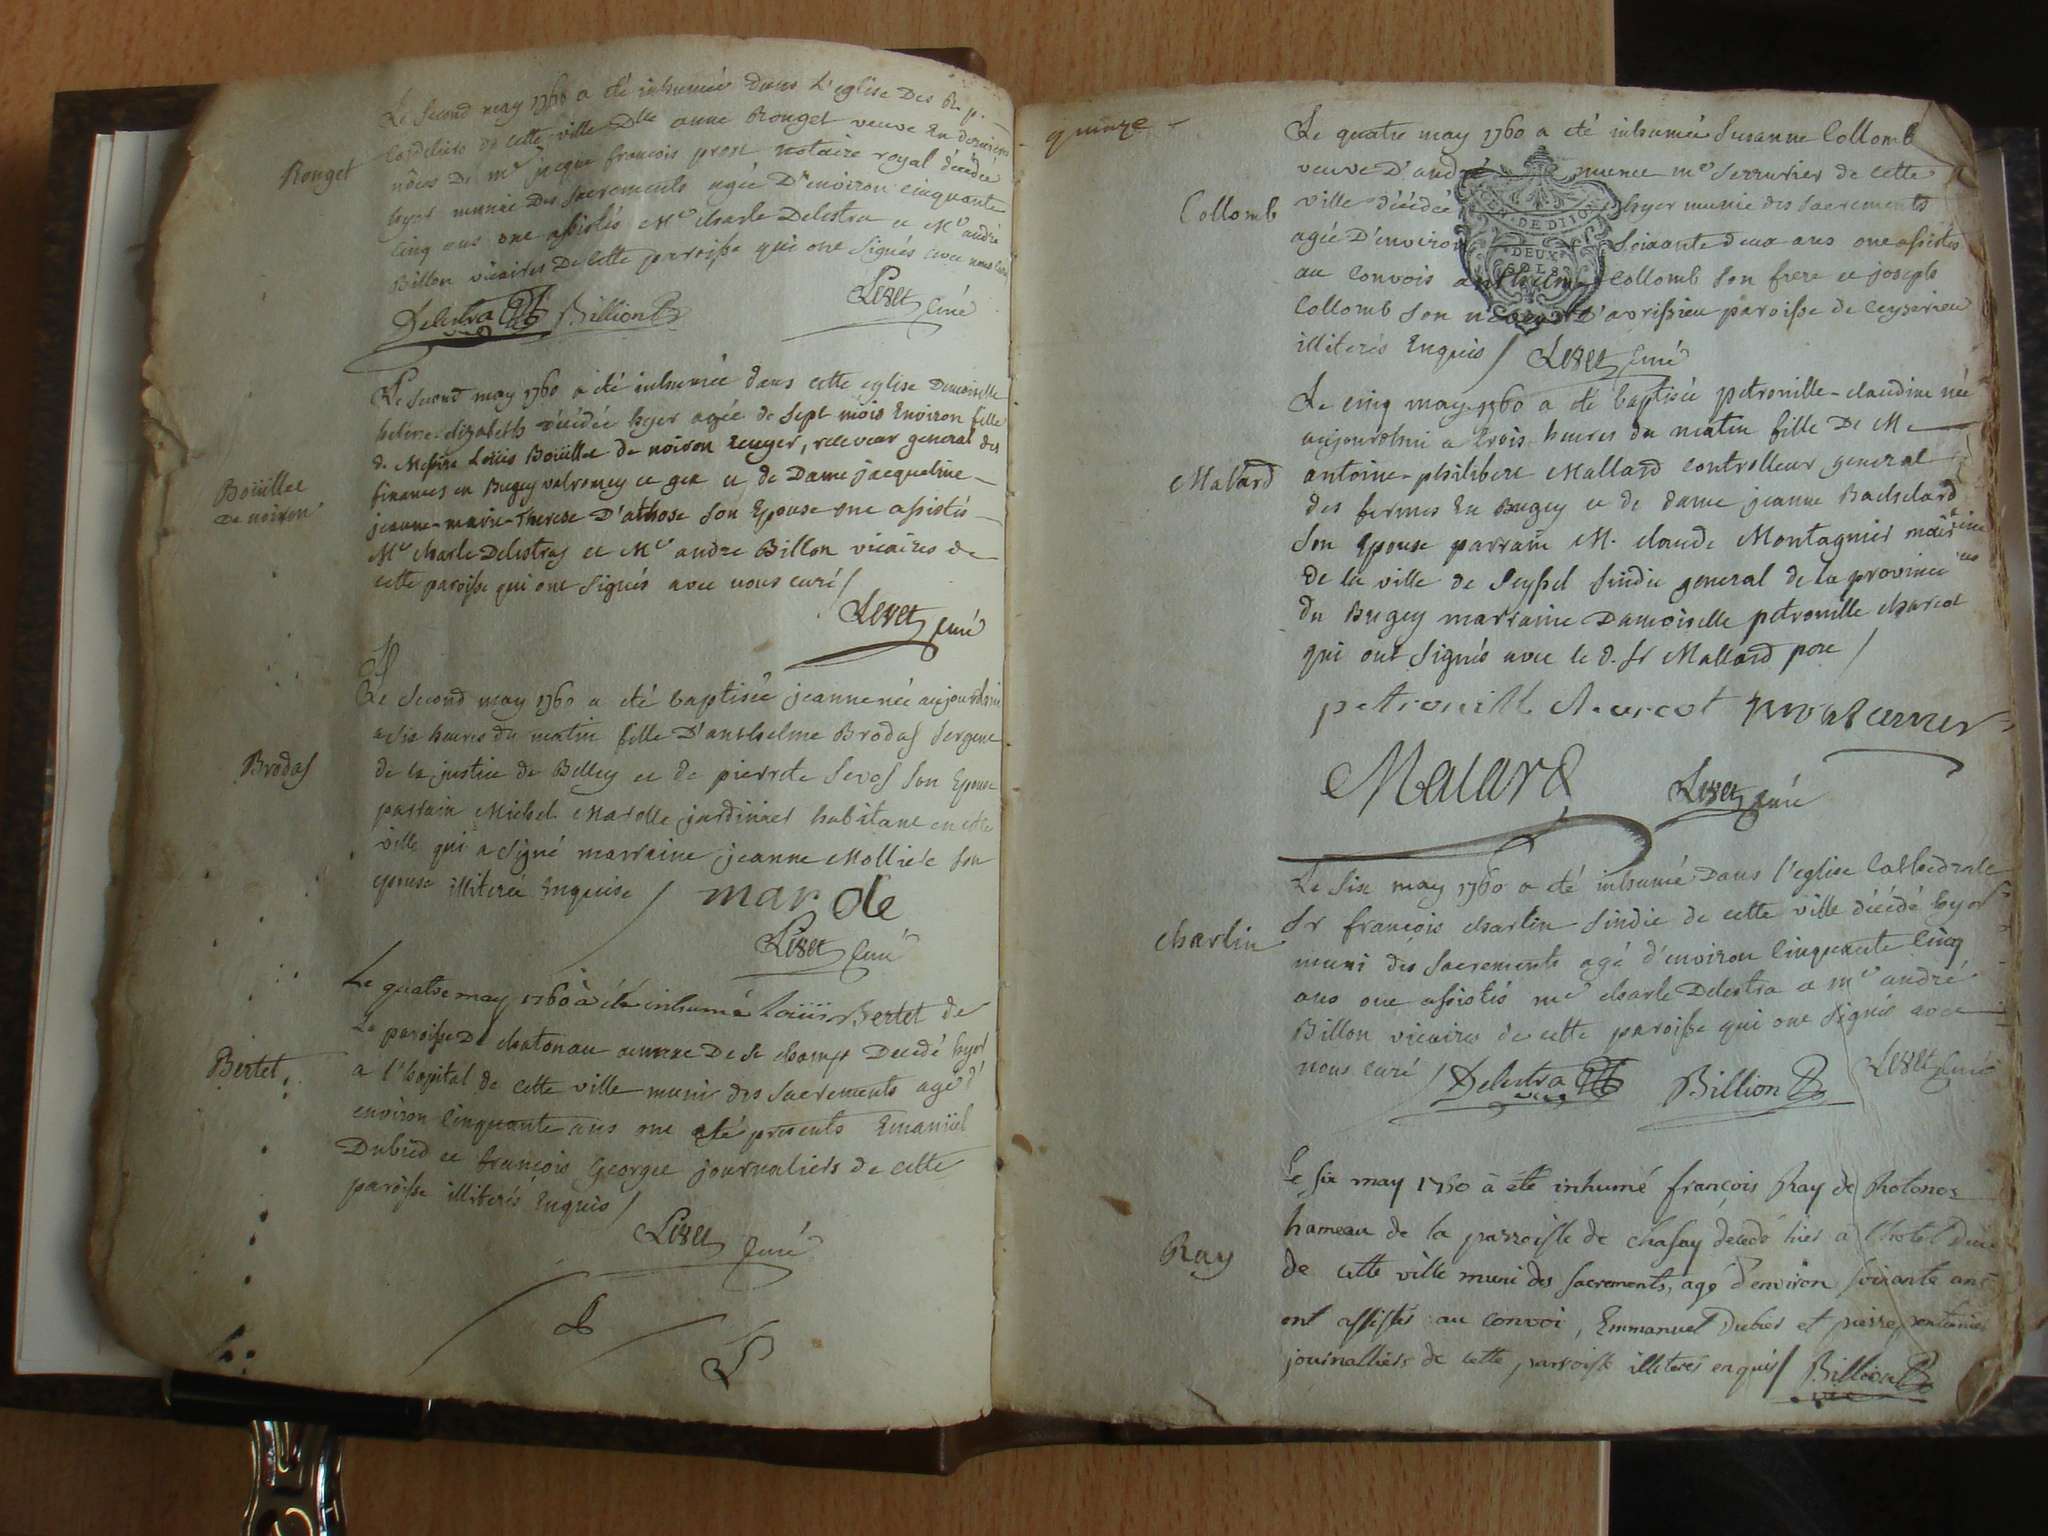 Le second may 1760 a été inhumée dans L'eglise Des R. p.
Cordeliers de cette ville Dlle anne Rouget veuve En dernieres
nôces De me jacque françois prost notaire royal décédée
hyer munie Des Sacrements agée D'environ cinquante
cinq ans ont assistés Mre charle Delestra et Mre andré
Billon vicaires De cette paroisse qui ont signés avec nous curé
Rouget
Delestra Billion Livet Curé
Le second may 1760 a été inhumée dans cette eglise Demoiselle
helene-elizabeth décédée hyer agée de sept mois Environ fille
de Messire Loüis Boüillet de noiron Ecuyer, receveur general des
finances en Bugey valromey et gex et de Dame jacqueline
jeanne-marie-therese D'athose son Epouse ont assistés
Mre charle Delestras et Mre andre Billon vicaires de
cette paroisse qui ont signés avec nous curé /
Boüillet
De noiron
Livet curé
Le second may 1760 a été baptisée jeanne née aujourdhui
a six heures du matin fille D'anthelme Brodas sergent
de la justice de Belley et de pierrete Sevos son Epouse
parrain Michel Marolle jardinier habitant en cette
ville qui a signé marraine jeanne Molliere son
epouse illiterée Enquise / marole
Brodas
Livet Curé
Le quatre may 1760 à été inhumé Loüis Bertet de
La paroisse De chatonau De st champt Decedé hyer
a l'hopital de cette ville muni des sacrements agé d'
environ cinquante ans ont été presents Emanüel
Dubied et françois George journaliers de cette
paroisse illiterés Enquis /
Bertet
Livet Curé
quinze
Le quatre may 1760 a été inhumée Susanne Collomb
veuve D'andré munet me Serrurier de cette
ville décédée hyer munie des sacrements
agée D'environ soixante deux ans ont assistés
au convois anthelme Collomb son frere et joseph
Collomb son neveu D'avrissieu paroisse de Ceyzerieu
illiterés Enquis / Livet Curé
Collomb
GEN. DE DIJON
DEUX
SOLS
Le cinq may 1760 a été baptisée petronille-claudine née
aujourdhui a trois heures du matin fille De Me
antoine-philibert Mallard controlleur general
des fermes En Bugey et de dame jeanne Bachelard
son Epouse parrain M. claude Montagnier maire
de la ville de Seyssel sindic general de la province
du Bugey marraine Damoiselle petronille charcot
qui ont signés avec le d. sr Mallard pere /
Malard
petronille charcot
Malard Livet Curé
Le six may 1760 a été inhumé Dans l'eglise Cathedrale
Sr françois charlin sindic de cette ville décédé hyer
muni des sacrements agé d'environ cinquante cinq
ans ont assistés me charle Delestra et me andré
Billon vicaires de cette paroisse qui ont signés avec
nous curé / Delestra Billion Livet Curé
charlin
Le six may 1760 à été inhumé françois Ray de
hameau de la parroisse de chasay décédé hier à l'hotel Dieu
de cette ville muni des sacrements, agé d'environ soixante ans
ont assistés au convoi, Emmanuel Dubiez et pierre
journalliers de cette parroisse illiteres enquis / Billion
Ray